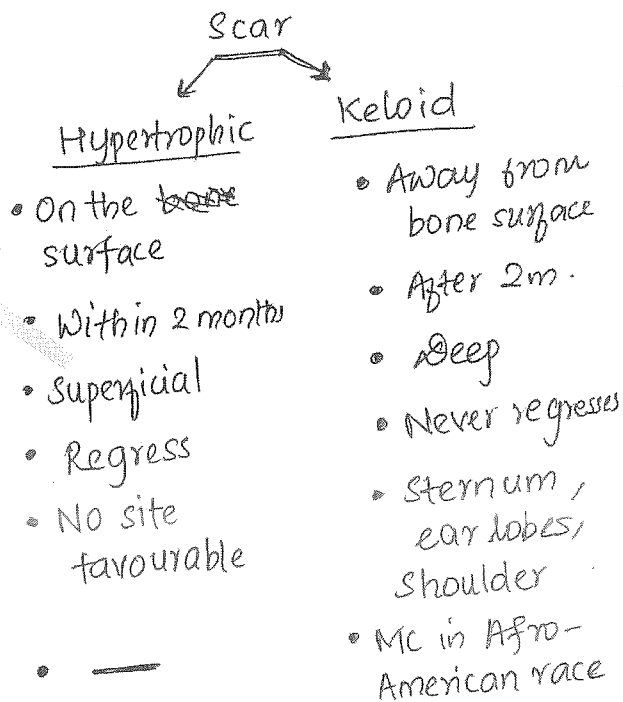 Scar
Hypertrophic
• On the
surface
• Within 2 months
• Superficial
• Regress
• No site
favourable
• —
Keloid
• Away from
bone surface
• After 2m.
• Deep
• Never regresses
• Sternum,
ear lobes,
shoulder
• MC in Afro-
American race